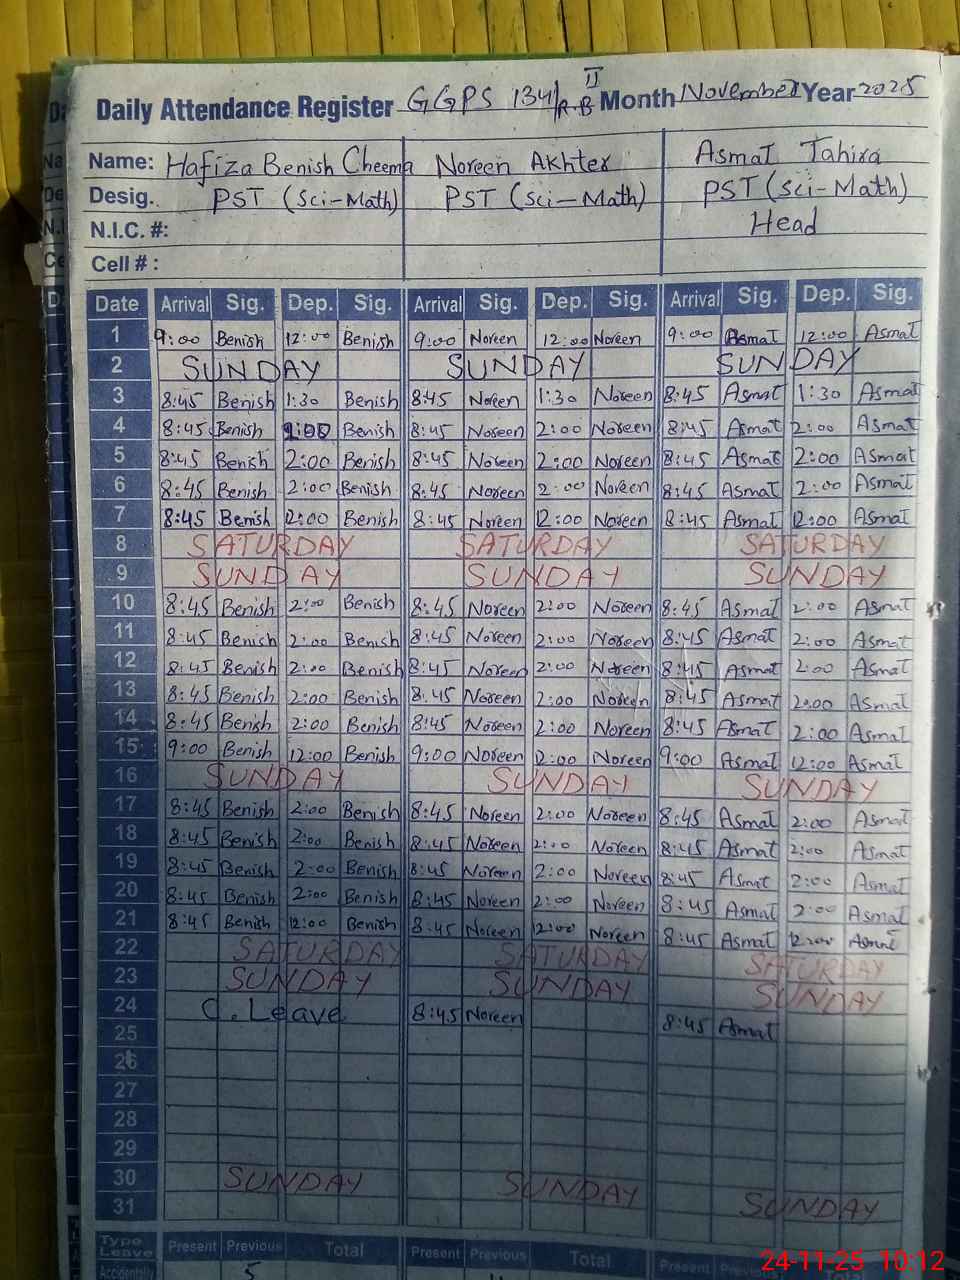 Daily Attendance Register GGPS 134/R-B II Month November Year 2025
Name: Hafiza Benish Cheema Noreen Akhter Asmat Tahira
Desig. PST (Sci-Math) PST (Sci-Math) PST (Sci-Math)
N.I.C. #: Head
Cell # :
Date Arrival Sig. Dep. Sig. Arrival Sig. Dep. Sig. Arrival Sig. Dep. Sig.
1 9:00 Benish 12:00 Benish 9:00 Noreen 12:00 Noreen 9:00 Asmat 12:00 Asmat
2 SUNDAY SUNDAY SUNDAY
3 8:45 Benish 1:30 Benish 8:45 Noreen 1:30 Noreen 8:45 Asmat 1:30 Asmat
4 8:45 Benish Benish 8:45 Noreen 2:00 Noreen 8:45 Asmat 2:00 Asmat
5 8:45 Benish 2:00 Benish 8:45 Noreen 2:00 Noreen 8:45 Asmat 2:00 Asmat
6 8:45 Benish 2:00 Benish 8:45 Noreen 2:00 Noreen 8:45 Asmat 2:00 Asmat
7 8:45 Benish 12:00 Benish 8:45 Noreen 12:00 Noreen 8:45 Asmat 12:00 Asmat
8 SATURDAY SATURDAY SATURDAY
9 SUNDAY SUNDAY SUNDAY
10 8:45 Benish 2:00 Benish 8:45 Noreen 2:00 Noreen 8:45 Asmat 2:00 Asmat
11 8:45 Benish 2:00 Benish 8:45 Noreen 2:00 Noreen 8:45 Asmat 2:00 Asmat
12 8:45 Benish 2:00 Benish 8:45 Noreen 2:00 Noreen 8:45 Asmat 2:00 Asmat
13 8:45 Benish 2:00 Benish 8:45 Noreen 2:00 Noreen 8:45 Asmat 2:00 Asmat
14 8:45 Benish 2:00 Benish 8:45 Noreen 2:00 Noreen 8:45 Asmat 2:00 Asmat
15 9:00 Benish 12:00 Benish 9:00 Noreen 12:00 Noreen 9:00 Asmat 12:00 Asmat
16 SUNDAY SUNDAY SUNDAY
17 8:45 Benish 2:00 Benish 8:45 Noreen 2:00 Noreen 8:45 Asmat 2:00 Asmat
18 8:45 Benish 2:00 Benish 8:45 Noreen 2:00 Noreen 8:45 Asmat 2:00 Asmat
19 8:45 Benish 2:00 Benish 8:45 Noreen 2:00 Noreen 8:45 Asmat 2:00 Asmat
20 8:45 Benish 2:00 Benish 8:45 Noreen 2:00 Noreen 8:45 Asmat 2:00 Asmat
21 8:45 Benish 12:00 Benish 8:45 Noreen 12:00 Noreen 8:45 Asmat 12:00 Asmat
22 SATURDAY SATURDAY SATURDAY
23 SUNDAY SUNDAY SUNDAY
24 C. Leave 8:45 Noreen 8:45 Asmat
25
26
27
28
29
30 SUNDAY SUNDAY SUNDAY
31
Type Leave Present Previous Total Present Previous Total Present Previous
Accidentily 5
24-11-25 10:12